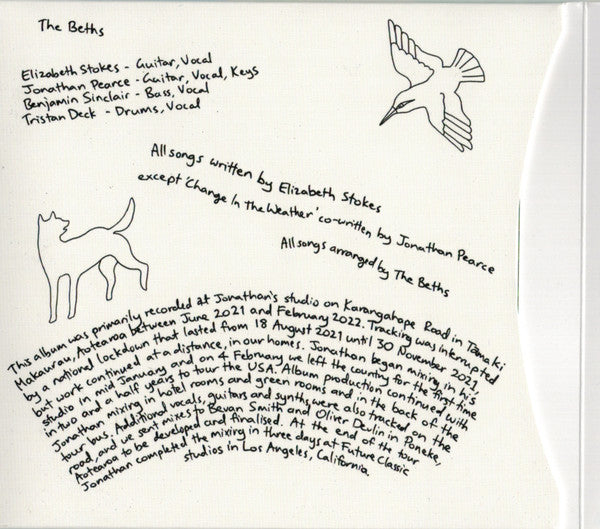 The Beths
Elizabeth Stokes - Guitar, Vocal
Jonathan Pearce - Guitar, Vocal, Keys
Benjamin Sinclair - Bass, Vocal
Tristan Deck - Drums, Vocal
All songs written by Elizabeth Stokes
except 'Change In The Weather' co-written by Jonathan Pearce
All songs arranged by The Beths
This album was primarily recorded at Jonathan's studio on Karangahape Road in Tāmaki
Makaurau, Aotearoa between June 2021 and February 2022. Tracking was interrupted
by a national lockdown that lasted from 18 August 2021 until 30 November 2021,
but work continued at a distance, in our homes. Jonathan began mixing in his
studio in mid January and on 4 February we left the country for the first time
in two and a half years to tour the USA. Album production continued with
Jonathan mixing in hotel rooms and green rooms and in the back of the
tour bus. Additional vocals, guitars and synths were also tracked on the
road, and we sent mixes to Bevan Smith and Oliver Devlin in Pōneke,
Aotearoa to be developed and finalised. At the end of the tour
Jonathan completed the mixing in three days at Future Classic
studios in Los Angeles, California.